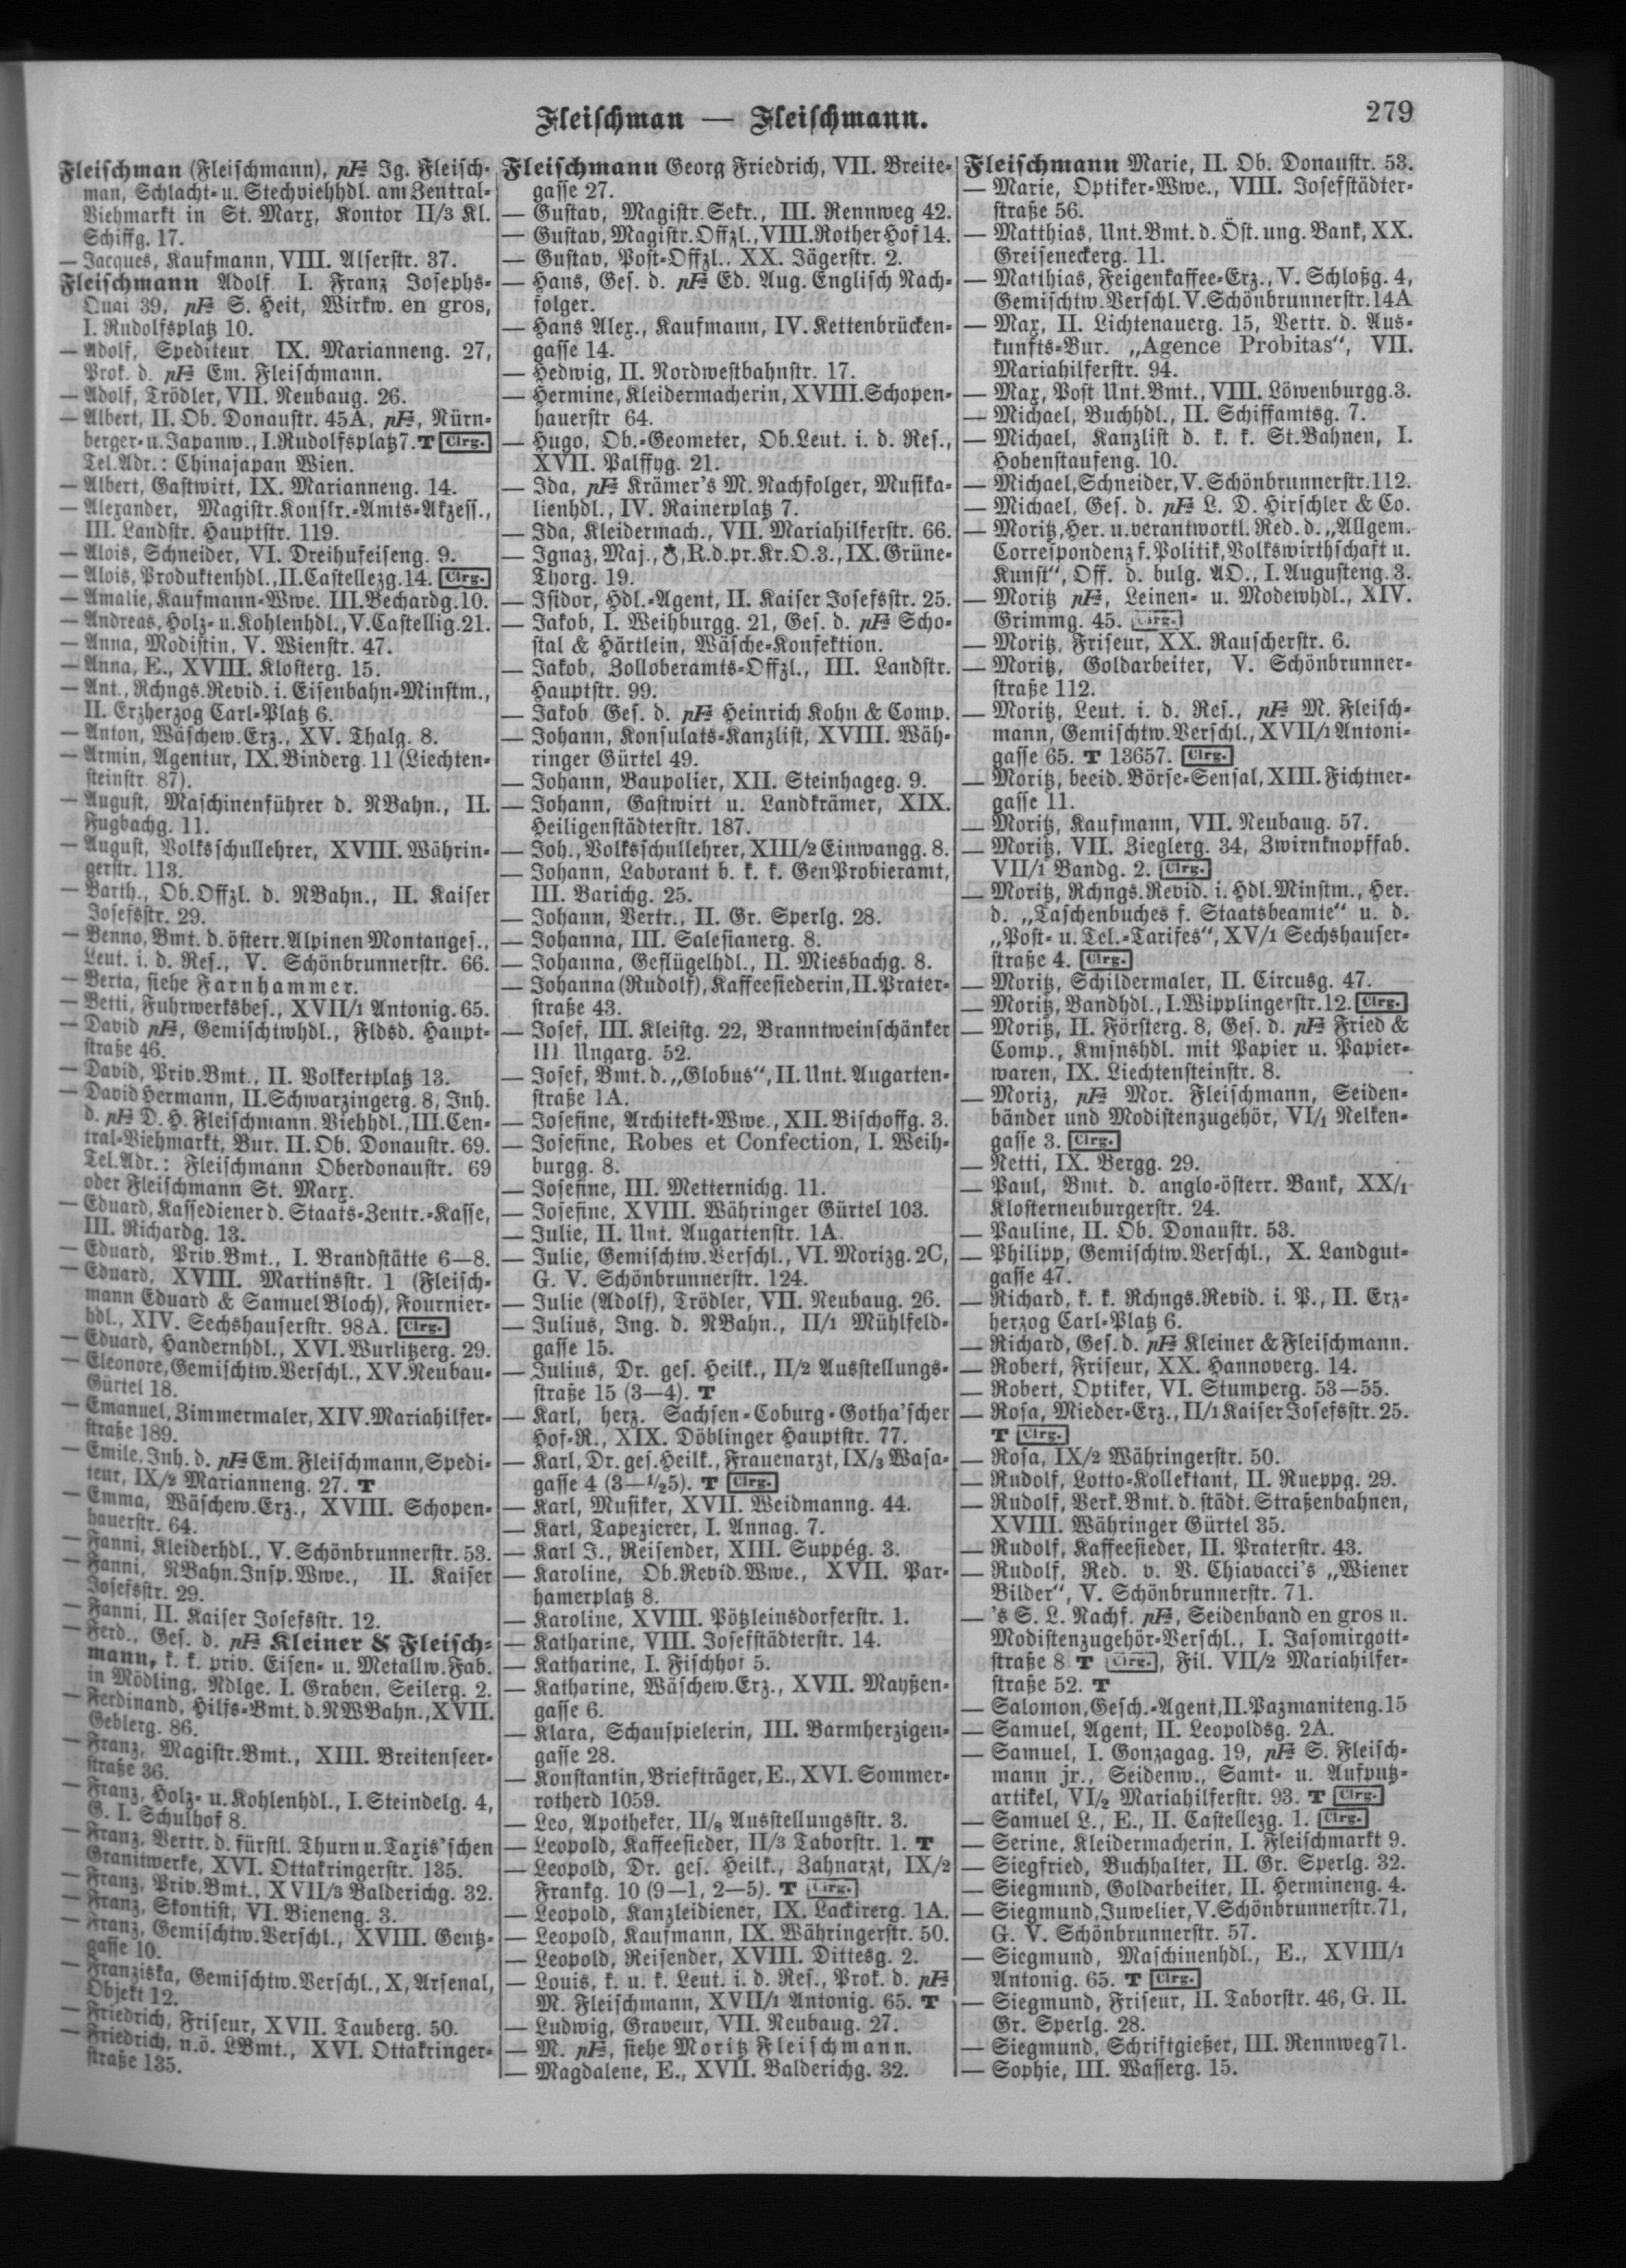 Fleischman — Fleischmann.
279
Fleischman (Fleischmann), pFa Ig. Fleisch-
man, Schlacht- u. Stechviehhdl. am Zentral-
Viehmarkt in St. Marx, Kontor II/3 Kl.
Schiffg. 17.
— Jacques, Kaufmann, VIII. Alserstr. 37.
Fleischmann Adolf I. Franz Josephs-
Quai 39, pFa S. Heit, Wirkw. en gros,
I. Rudolfsplatz 10.
— Adolf, Spediteur IX. Marianneng. 27,
Prok. d. pFa Em. Fleischmann.
— Adolf, Trödler, VII. Neubaug. 26.
— Albert, II. Ob. Donaustr. 45A, pFa, Nürn-
berger- u. Japanw., I. Rudolfsplatz 7. T Clrg.
Tel.Adr.: Chinajapan Wien.
— Albert, Gastwirt, IX. Marianneng. 14.
— Alexander, Magistr.Konskr.-Amts-Akzess.,
III. Landstr. Hauptstr. 119.
— Alois, Schneider, VI. Dreihufeiseng. 9.
— Alois, Produktenhdl., II. Castellezg. 14. Clrg.
— Amalie, Kaufmann-Wwe. III. Bechardg. 10.
— Andreas, Holz- u. Kohlenhdl., V. Castellig. 21.
— Anna, Modistin, V. Wienstr. 47.
— Anna, E., XVIII. Klosterg. 15.
— Ant., Rchngs.Revid. i. Eisenbahn-Minstm.,
II. Erzherzog Carl-Platz 6.
— Anton, Wäschew.Erz., XV. Thalg. 8.
— Armin, Agentur, IX. Binderg. 11 (Liechten-
steinstr 87).
— August, Maschinenführer d. NBahn., II.
Fugbachg. 11.
— August, Volksschullehrer, XVIII. Währin-
gerstr. 113.
— Barth., Ob.Offzl. d. NBahn., II. Kaiser
Josefsstr. 29.
— Benno, Bmt. d. österr. Alpinen Montanges.,
Leut. i. d. Res., V. Schönbrunnerstr. 66.
— Berta, siehe Farnhammer.
— Betti, Fuhrwerksbes., XVII/1 Antonig. 65.
— David pFa, Gemischtwhdl., Fldsd. Haupt-
straße 46.
— David, Priv.Bmt., II. Volkertplatz 13.
— David Hermann, II. Schwarzingerg. 8, Inh.
d. pFa D. H. Fleischmann. Viehhdl., III. Cen-
tral-Viehmarkt, Bur. II. Ob. Donaustr. 69.
Tel.Adr.: Fleischmann Oberdonaustr. 69
oder Fleischmann St. Marx.
— Eduard, Kassediener d. Staats-Zentr.-Kasse,
III. Richardg. 13.
— Eduard, Priv.Bmt., I. Brandstätte 6—8.
— Eduard, XVIII. Martinsstr. 1 (Fleisch-
mann Eduard & Samuel Bloch), Fournier-
hdl., XIV. Sechshauserstr. 98A. Clrg.
— Eduard, Handernhdl., XVI. Wurlitzerg. 29.
— Eleonore, Gemischtw.Verschl., XV. Neubau-
Gürtel 18.
— Emanuel, Zimmermaler, XIV. Mariahilfer-
straße 189.
— Emile, Inh. d. pFa Em. Fleischmann, Spedi-
teur, IX/2 Marianneng. 27. T
— Emma, Wäschew.Erz., XVIII. Schopen-
hauerstr. 64.
— Fanni, Kleiderhdl., V. Schönbrunnerstr. 53.
— Fanni, NBahn.Insp.Wwe., II. Kaiser
Josefsstr. 29.
— Fanni, II. Kaiser Josefsstr. 12.
— Ferd., Ges. d. pFa Kleiner & Fleisch-
mann, k. k. priv. Eisen- u. Metallw.Fab.
in Mödling, Ndlge. I. Graben, Seilerg. 2.
— Ferdinand, Hilfs-Bmt. d. NWBahn., XVII.
Geblerg. 86.
— Franz, Magistr.Bmt., XIII. Breitenseer-
straße 36.
— Franz, Holz- u. Kohlenhdl., I. Steindelg. 4,
G. I. Schulhof 8.
— Franz, Vertr. d. fürstl. Thurn u. Taxis'schen
Granitwerke, XVI. Ottakringerstr. 135.
— Franz, Priv.Bmt., XVII/3 Balderichg. 32.
— Franz, Skontist, VI. Bieneng. 3.
— Franz, Gemischtw.Verschl., XVIII. Gentz-
gasse 10.
— Franziska, Gemischtw.Verschl., X, Arsenal,
Objekt 12.
— Friedrich, Friseur, XVII. Tauberg. 50.
— Friedrich, n.ö. LBmt., XVI. Ottakringer-
straße 135.
Fleischmann Georg Friedrich, VII. Breite-
gasse 27.
— Gustav, Magistr.Sekr., III. Rennweg 42.
— Gustav, Magistr.Offzl., VIII. Rother Hof 14.
— Gustav, Post-Offzl., XX. Jägerstr. 2.
— Hans, Ges. d. pFa Ed. Aug. Englisch Nach-
folger.
— Hans Alex., Kaufmann, IV. Kettenbrücken-
gasse 14.
— Hedwig, II. Nordwestbahnstr. 17.
— Hermine, Kleidermacherin, XVIII. Schopen-
hauerstr 64.
— Hugo, Ob.-Geometer, Ob.Leut. i. d. Res.,
XVII. Palffyg. 21.
— Ida, pFa Krämer's M. Nachfolger, Musika-
lienhdl., IV. Rainerplatz 7.
— Ida, Kleidermach., VII. Mariahilferstr. 66.
— Ignaz, Maj., R.d.pr.Kr.O.3., IX. Grüne-
Thorg. 19.
— Isidor, Hdl.-Agent, II. Kaiser Josefsstr. 25.
— Jakob, I. Weihburgg. 21, Ges. d. pFa Scho-
stal & Härtlein, Wäsche-Konfektion.
— Jakob, Zolloberamts-Offzl., III. Landstr.
Hauptstr. 99.
— Jakob Ges. d. pFa Heinrich Kohn & Comp.
— Johann, Konsulats-Kanzlist, XVIII. Wäh-
ringer Gürtel 49.
— Johann, Baupolier, XII. Steinhageg. 9.
— Johann, Gastwirt u. Landkrämer, XIX.
Heiligenstädterstr. 187.
— Joh., Volksschullehrer, XIII/2 Einwangg. 8.
— Johann, Laborant b. k. k. GenProbieramt,
III. Barichg. 25.
— Johann, Vertr., II. Gr. Sperlg. 28.
— Johanna, III. Salesianerg. 8.
— Johanna, Geflügelhdl., II. Miesbachg. 8.
— Johanna (Rudolf), Kaffeesiederin, II. Prater-
straße 43.
— Josef, III. Kleistg. 22, Branntweinschänker
III. Ungarg. 52.
— Josef, Bmt. d. „Globus“, II. Unt. Augarten-
straße 1A.
— Josefine, Architekt-Wwe., XII. Bischoffg. 3.
— Josefine, Robes et Confection, I. Weih-
burgg. 8.
— Josefine, III. Metternichg. 11.
— Josefine, XVIII. Währinger Gürtel 103.
— Julie, II. Unt. Augartenstr. 1A.
— Julie, Gemischtw.Verschl., VI. Morizg. 2C,
G. V. Schönbrunnerstr. 124.
— Julie (Adolf), Trödler, VII. Neubaug. 26.
— Julius, Ing. d. NBahn., II/1 Mühlfeld-
gasse 15.
— Julius, Dr. ges. Heilk., II/2 Ausstellungs-
straße 15 (3—4). T
— Karl, herz. Sachsen-Coburg-Gotha'scher
Hof-R., XIX. Döblinger Hauptstr. 77.
— Karl, Dr. ges. Heilk., Frauenarzt, IX/3 Wasa-
gasse 4 (3—1/2 5). T Clrg.
— Karl, Musiker, XVII. Weidmanng. 44.
— Karl, Tapezierer, I. Annag. 7.
— Karl J., Reisender, XIII. Suppég. 3.
— Karoline, Ob.Revid.Wwe., XVII. Par-
hamerplatz 8.
— Karoline, XVIII. Pötzleinsdorferstr. 1.
— Katharine, VIII. Josefstädterstr. 14.
— Katharine, I. Fischhof 5.
— Katharine, Wäschew.Erz., XVII. Mayßen-
gasse 6.
— Klara, Schauspielerin, III. Barmherzigen-
gasse 28.
— Konstantin, Briefträger, E., XVI. Sommer-
rotherd 1059.
— Leo, Apotheker, II/8 Ausstellungsstr. 3.
— Leopold, Kaffeesieder, II/3 Taborstr. 1. T
— Leopold, Dr. ges. Heilk., Zahnarzt, IX/2
Frankg. 10 (9—1, 2—5). T Clrg.
— Leopold, Kanzleidiener, IX. Lackirerg. 1A.
— Leopold, Kaufmann, IX. Währingerstr. 50.
— Leopold, Reisender, XVIII. Dittesg. 2.
— Louis, k. u. k. Leut. i. d. Res., Prok. d. pFa
M. Fleischmann, XVII/1 Antonig. 65. T
— Ludwig, Graveur, VII. Neubaug. 27.
— M. pFa, siehe Moritz Fleischmann.
— Magdalene, E., XVII. Balderichg. 32.
Fleischmann Marie, II. Ob. Donaustr. 53.
— Marie, Optiker-Wwe., VIII. Josefstädter-
straße 56.
— Matthias, Unt.Bmt. d. Öst. ung. Bank, XX.
Greiseneckerg. 11.
— Matthias, Feigenkaffee-Erz., V. Schloßg. 4,
Gemischtw.Verschl. V. Schönbrunnerstr. 14A
— Max, II. Lichtenauerg. 15, Vertr. d. Aus-
kunfts-Bur. „Agence Probitas“, VII.
Mariahilferstr. 94.
— Max, Post Unt.Bmt., VIII. Löwenburgg. 3.
— Michael, Buchhdl., II. Schiffamtsg. 7.
— Michael, Kanzlist d. k. k. St.Bahnen, I.
Hohenstaufeng. 10.
— Michael, Schneider, V. Schönbrunnerstr. 112.
— Michael, Ges. d. pFa L. D. Hirschler & Co.
— Moritz, Her. u. verantwortl. Red. d. „Allgem.
Correspondenz f. Politik, Volkswirthschaft u.
Kunst“, Off. d. bulg. AO., I. Augusteng. 3.
— Moritz pFa, Leinen- u. Modewhdl., XIV.
Grimmg. 45. Clrg.
— Moritz, Friseur, XX. Rauscherstr. 6.
— Moritz, Goldarbeiter, V. Schönbrunner-
straße 112.
— Moritz, Leut. i. d. Res., pFa M. Fleisch-
mann, Gemischtw.Verschl., XVII/1 Antoni-
gasse 65. T 13657. Clrg.
— Moritz, beeid. Börse-Sensal, XIII. Fichtner-
gasse 11.
— Moritz, Kaufmann, VII. Neubaug. 57.
— Moritz, VII. Zieglerg. 34, Zwirnknopffab.
VII/1 Bandg. 2. Clrg.
— Moritz, Rchngs.Revid. i. Hdl.Minstm., Her.
d. „Taschenbuches f. Staatsbeamte“ u. d.
„Post- u. Tel.-Tarifes“, XV/1 Sechshauser-
straße 4. Clrg.
— Moritz, Schildermaler, II. Circusg. 47.
— Moritz, Bandhdl., I. Wipplingerstr. 12. Clrg.
— Moritz, II. Försterg. 8, Ges. d. pFa Fried &
Comp., Kmsnshdl. mit Papier u. Papier-
waren, IX. Liechtensteinstr. 8.
— Moriz, pFa Mor. Fleischmann, Seiden-
bänder und Modistenzugehör, VI/1 Nelken-
gasse 3. Clrg.
— Netti, IX. Bergg. 29.
— Paul, Bmt. d. anglo-österr. Bank, XX/1
Klosterneuburgerstr. 24.
— Pauline, II. Ob. Donaustr. 53.
— Philipp, Gemischtw.Verschl., X. Landgut-
gasse 47.
— Richard, k. k. Rchngs.Revid. i. P., II. Erz-
herzog Carl-Platz 6.
— Richard, Ges. d. pFa Kleiner & Fleischmann.
— Robert, Friseur, XX. Hannoverg. 14.
— Robert, Optiker, VI. Stumperg. 53—55.
— Rosa, Mieder-Erz., II/1 Kaiser Josefsstr. 25.
T Clrg.
— Rosa, IX/2 Währingerstr. 50.
— Rudolf, Lotto-Kollektant, II. Rueppg. 29.
— Rudolf, Verk.Bmt. d. städt. Straßenbahnen,
XVIII. Währinger Gürtel 35.
— Rudolf, Kaffeesieder, II. Praterstr. 43.
— Rudolf, Red. v. V. Chiavacci's „Wiener
Bilder“, V. Schönbrunnerstr. 71.
— 's S. L. Nachf. pFa, Seidenband en gros u.
Modistenzugehör-Verschl., I. Jasomirgott-
straße 8 T Clrg., Fil. VII/2 Mariahilfer-
straße 52. T
— Salomon, Gesch.-Agent, II. Pazmaniteng. 15
— Samuel, Agent, II. Leopoldsg. 2A.
— Samuel, I. Gonzagag. 19, pFa S. Fleisch-
mann jr., Seidenw., Samt- u. Aufputz-
artikel, VI/2 Mariahilferstr. 93. T Clrg.
— Samuel L., E., II. Castellezg. 1. Clrg.
— Serine, Kleidermacherin, I. Fleischmarkt 9.
— Siegfried, Buchhalter, II. Gr. Sperlg. 32.
— Siegmund, Goldarbeiter, II. Hermineng. 4.
— Siegmund, Juwelier, V. Schönbrunnerstr. 71,
G. V. Schönbrunnerstr. 57.
— Siegmund, Maschinenhdl., E., XVIII/1
Antonig. 65. T Clrg.
— Siegmund, Friseur, II. Taborstr. 46, G. II.
Gr. Sperlg. 28.
— Siegmund, Schriftgießer, III. Rennweg 71.
— Sophie, III. Wasserg. 15.